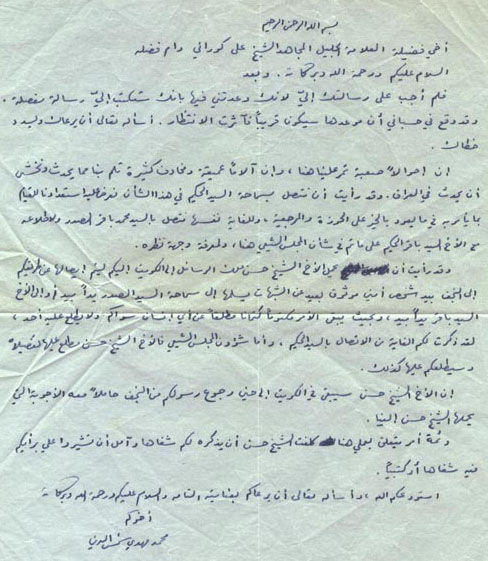 بسم الله الرحمن الرحيم
أخي فضيلة العلامة الجليل المجاهد الشيخ علي كوراني دام فضله
السلام عليكم ورحمة الله وبركاته. وبعد
فلم أجب على رسالتك إليّ لأنك وعدتني فيها بأنك ستكتب إليّ رسالة مفصلة.
وقد وقع في حسباني أن موعدها سيكون قريباً فآثرت الانتظار. أسأله تعالى أن يرعاك ويسدد
خطاك.
إن أحوالاً صعبة تمر علينا هنا، وإن آلاماً عميقة ومخاوف كثيرة تلم بنا مما يحدث ونخشى
أن يحدث في العراق. وقد رأيت أن نتصل بسماحة السيد الحكيم في هذا الشأن استعدادنا للقيام
بما يأمر به في ما يعود بالخير على الحوزة والمرجعية، وللغاية نفسها نتصل بالسيد محمد باقر الصدر ولاطلاعه
مع الأخ السيد باقر الحكيم على ما تم في شأن المجلس الشيعي هنا، ولمعرفة وجهة نظره.
وقد رأيت أن الأخ الشيخ حسن الرسائل إلى الكويت إليكم ليتم إيصالها عن طريقكم
إلى النجف بيد شخص أمين موثوق بعيد عن الشبهات يسلمها إلى سماحة السيد الصدر يداً بيد أو إلى الأخ
السيد باقر يداً بيد، وبحيث يبقى الأمر مكتوماً كتماناً مطلقاً عن أي إنسان سواكم ولا يطلع عليه أحد،
لقد ذكرت لكم الغاية من الاتصال بالسيد الحكيم، وأما شؤون المجلس الشيعي فالأخ الشيخ حسن مطلع عليها تفصيلاً
وسيطلعكم عليها كذلك.
إن الأخ الشيخ حسن سيبقى في الكويت إلى حين رجوع رسولكم من النجف حاملاً معه الأجوبة التي
يحملها الشيخ حسن إلينا.
وثمة أمر يتعلق بعملي هنا كلفت الشيخ حسن أن يذكره لكم شفاهاً وآمل أن تشيروا علي برأيكم
فيه شفاهاً أو كتبياً.
أستودعكم الله، وأسأله تعالى أن يرعاكم بعنايته التامة والسلام عليكم ورحمة الله وبركاته
أخوكم
محمد مهدي شمس الدين